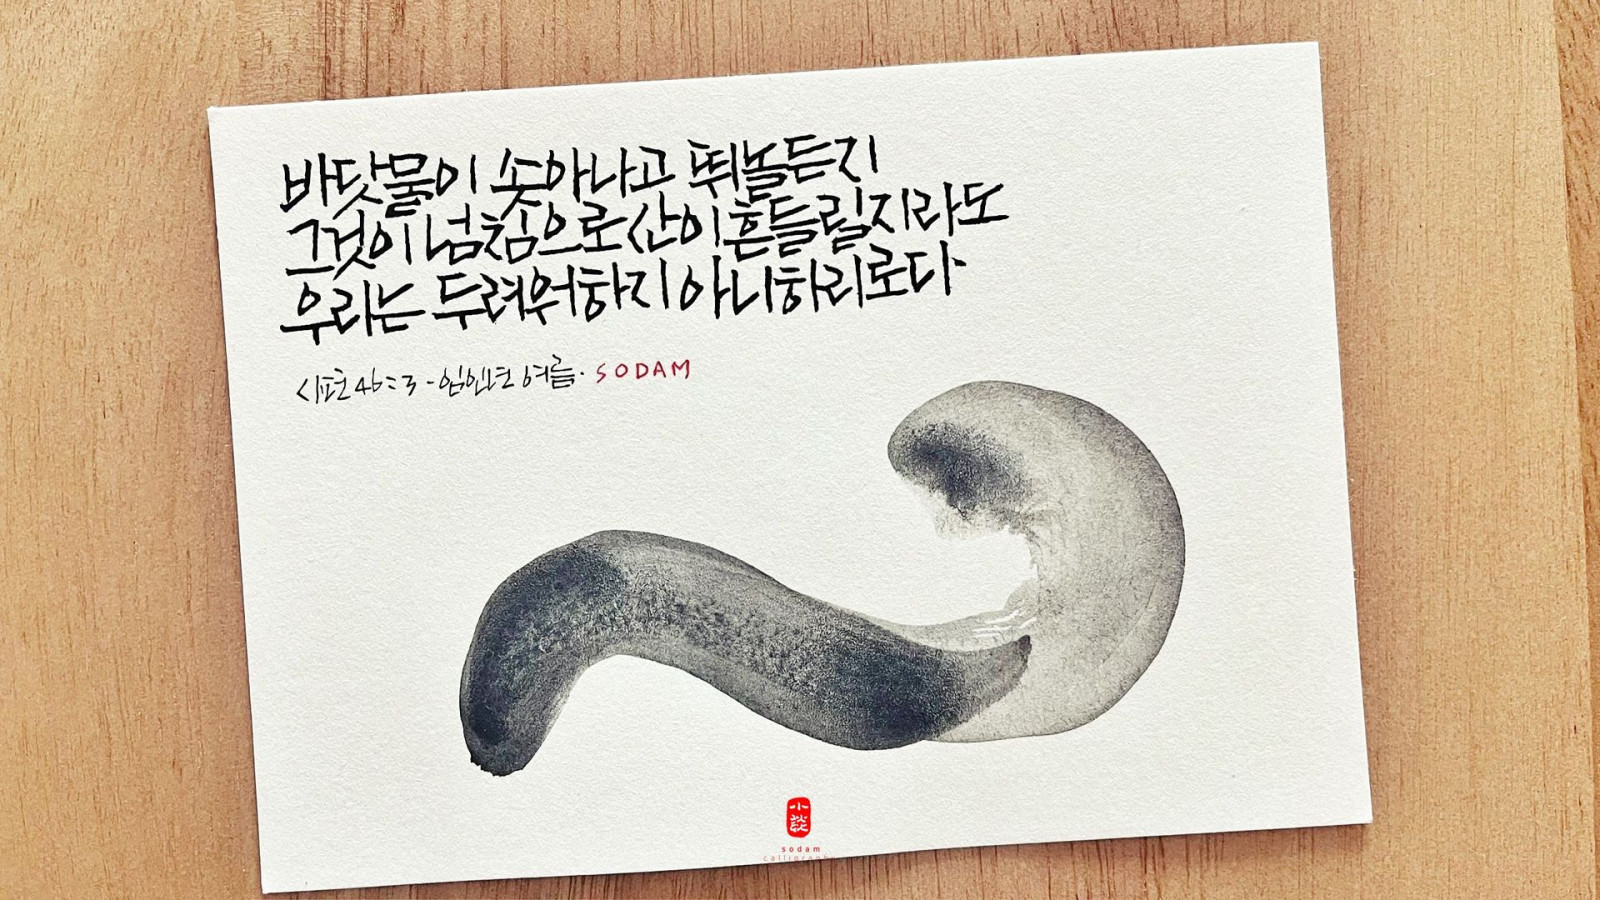 바닷물이 솟아나고 뛰놀든지
그것이 넘침으로 산이 흔들릴지라도
우리는 두려워하지 아니하리로다
시편 46:3 - 임인년 여름. SODAM
小談
sodam
calligraphy